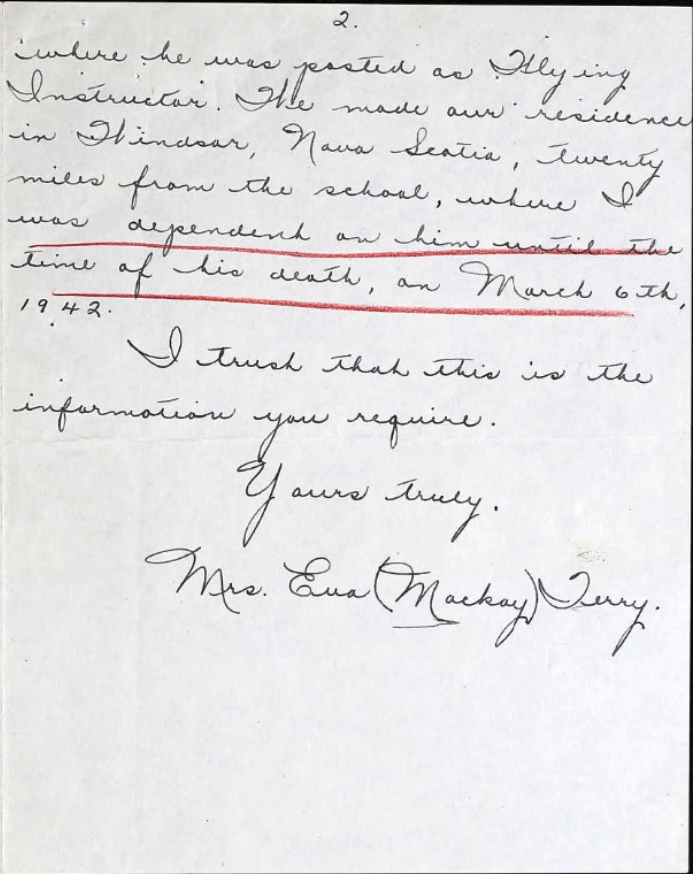 2.
where he was posted as Flying
Instructor. We made our residence
in Windsor, Nova Scotia, twenty
miles from the school, where I
was dependent on him until the
time of his death, on March 6th,
1942.
I trust that this is the
information you require.
Yours truly.
Mrs. Eva (Mackay) Terry.